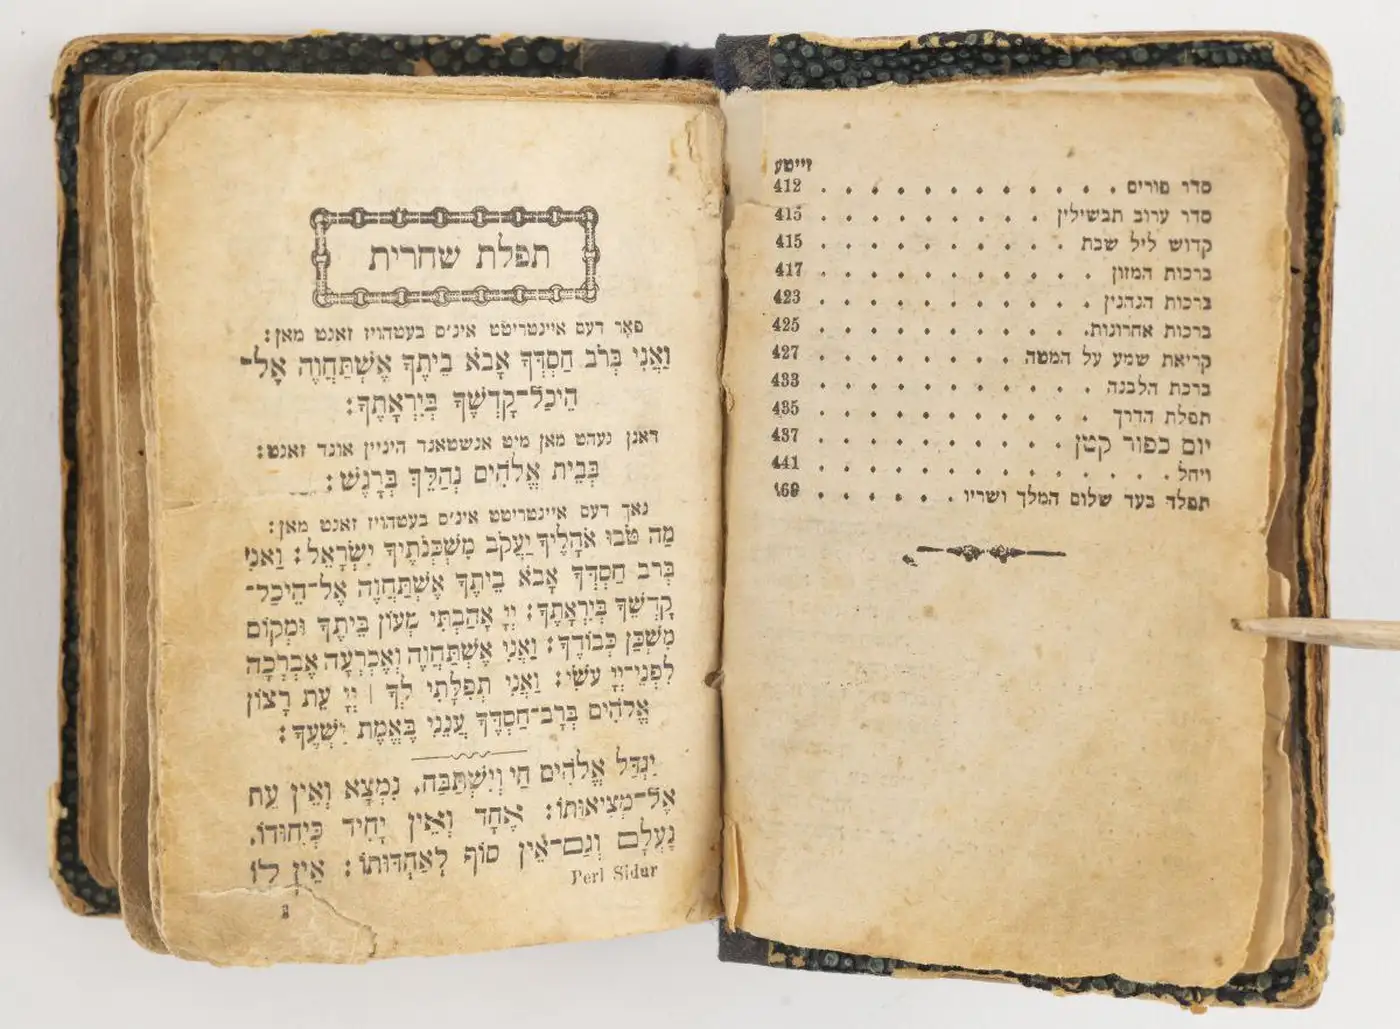 זייטע
סדר פורים 412
סדר ערוב תבשילין 415
קדוש ליל שבת 415
ברכות המזון 417
ברכות הנהנין 423
ברכות אחרונות. 425
קריאת שמע על המטה 427
ברכת הלבנה 433
תפלת הדרך 435
יום כפור קטן 437
ויחל 441
תפלה בעד שלום המלך ושריו 169
תפלת שחרית
פאָר דעם איינטריטט אינ׳ס בעטהויז זאגט מאן:
וַאֲנִי בְּרֹב חַסְדְּךָ אָבֹא בֵיתֶךָ אֶשְׁתַּחֲוֶה אֶל־
הֵיכַל־קָדְשְׁךָ בְּיִרְאָתֶךָ:
דאנן געהט מאן מיט אנשטאנד היניין אונד זאגט:
בְּבֵית אֱלֹהִים נְהַלֵּךְ בְּרָגֶשׁ:
נאך דעם איינטריטט אינ׳ס בעטהויז זאגט מאן:
מַה טֹּבוּ אֹהָלֶיךָ יַעֲקֹב מִשְׁכְּנֹתֶיךָ יִשְׂרָאֵל: וַאֲנִי
בְּרֹב חַסְדְּךָ אָבֹא בֵיתֶךָ אֶשְׁתַּחֲוֶה אֶל־הֵיכַל־
קָדְשְׁךָ בְּיִרְאָתֶךָ: יְיָ אָהַבְתִּי מְעוֹן בֵּיתֶךָ וּמְקוֹם
מִשְׁכַּן כְּבוֹדֶךָ: וַאֲנִי אֶשְׁתַּחֲוֶה וְאֶכְרָעָה אֶבְרְכָה
לִפְנֵי־יְיָ עֹשִׂי: וַאֲנִי תְפִלָּתִי לְךָ | יְיָ עֵת רָצוֹן
אֱלֹהִים בְּרָב־חַסְדֶּךָ עֲנֵנִי בֶּאֱמֶת יִשְׁעֶךָ:
יִגְדַּל אֱלֹהִים חַי וְיִשְׁתַּבַּח. נִמְצָא וְאֵין עֵת
אֶל־מְצִיאוּתוֹ: אֶחָד וְאֵין יָחִיד כְּיִחוּדוֹ.
נֶעְלָם וְגַם־אֵין סוֹף לְאַחְדּוּתוֹ: אֵין לוֹ
Perl Sidur
1